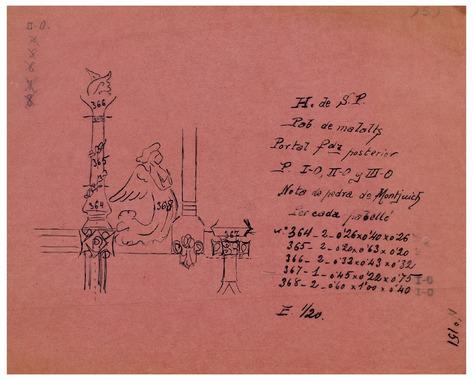 II-O.
366
365
364
368
367
H. de S.P.
Pab de malalts
Portal faz posterior
P. I-O, II-O y III-O
Nota de pedra de Montjuich
Per cada pabelló
nº 364_2_0'26x0'40x0'26
365_2_0'20x0'63x0'20
366_2_0'33x0'43x0'32
367_1_0'45x0'22x0'75
368_2_0'60x1'00x0'40
E. 1/20.
I-O
I-O
151